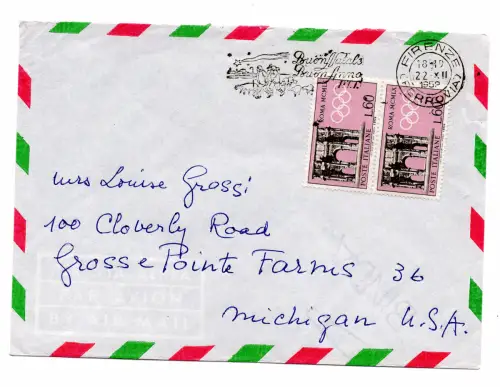 Buon Natale
Buon Anno
P.T.
FIRENZE
18-19
22-XII
(FERROVIA)
ROMA MCMLX
L.60
POSTE ITALIANE
ROMA MCMLX
L.60
POSTE ITALIANE
Mrs Louise Grossi
100 Cloverly Road
Grosse Pointe Farms 36
Michigan U.S.A.
PAR AVION
BY AIR MAIL